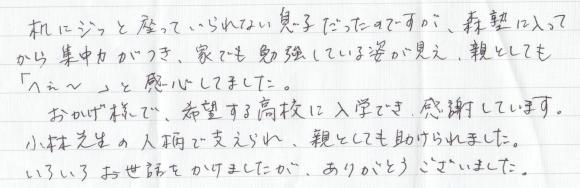 机にジッと座っていられない息子だったのですが、森塾に入って
から集中力がつき、家でも勉強している姿が見え、親としても
「へぇ～」と感心してました。
おかげ様で、希望する高校に入学でき、感謝しています。
小林先生の人柄で支えられ、親としても助けられました。
いろいろお世話をかけましたが、ありがとうございました。